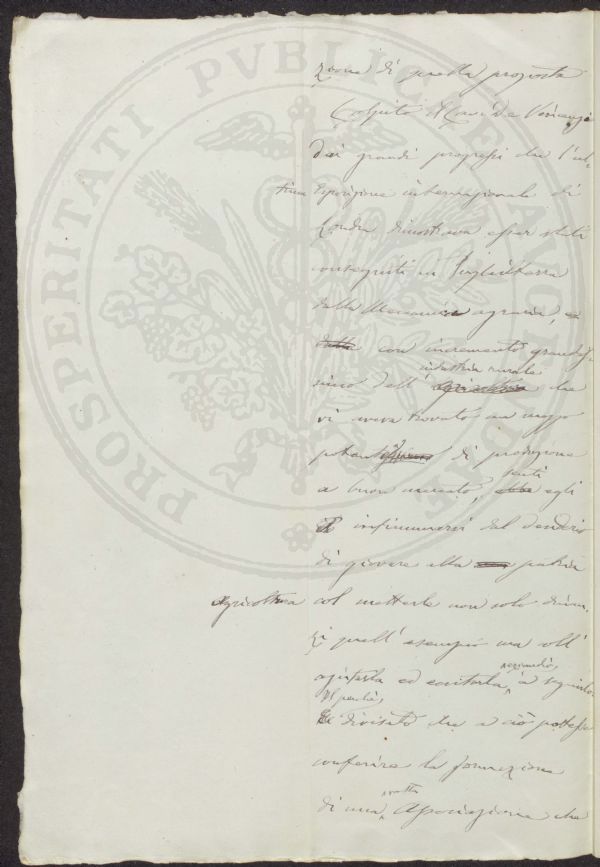 PROSPERITATI PVBLICAE AVGENDAE
zione di quella proposta
Colpito il Cav. Da
dai grandi progressi che l'ul-
tima Esposizione internazionale di
Londra dimostrava esser stati
conseguiti in Inghilterra
dalla Meccanica agraria,
con incremento grandis-
simo dell' industria rurale che
vi aveva trovato un mezzo
di produzione
a buon mercato, sentì egli
infiammarsi dal desiderio
di giovare alla patria
agricoltura col metterle non solo dinan-
zi quell' esempio ma coll'
ed eccitarla a seguirlo
divisato che a ciò potesse
conferire la formazione
di una Associazione che